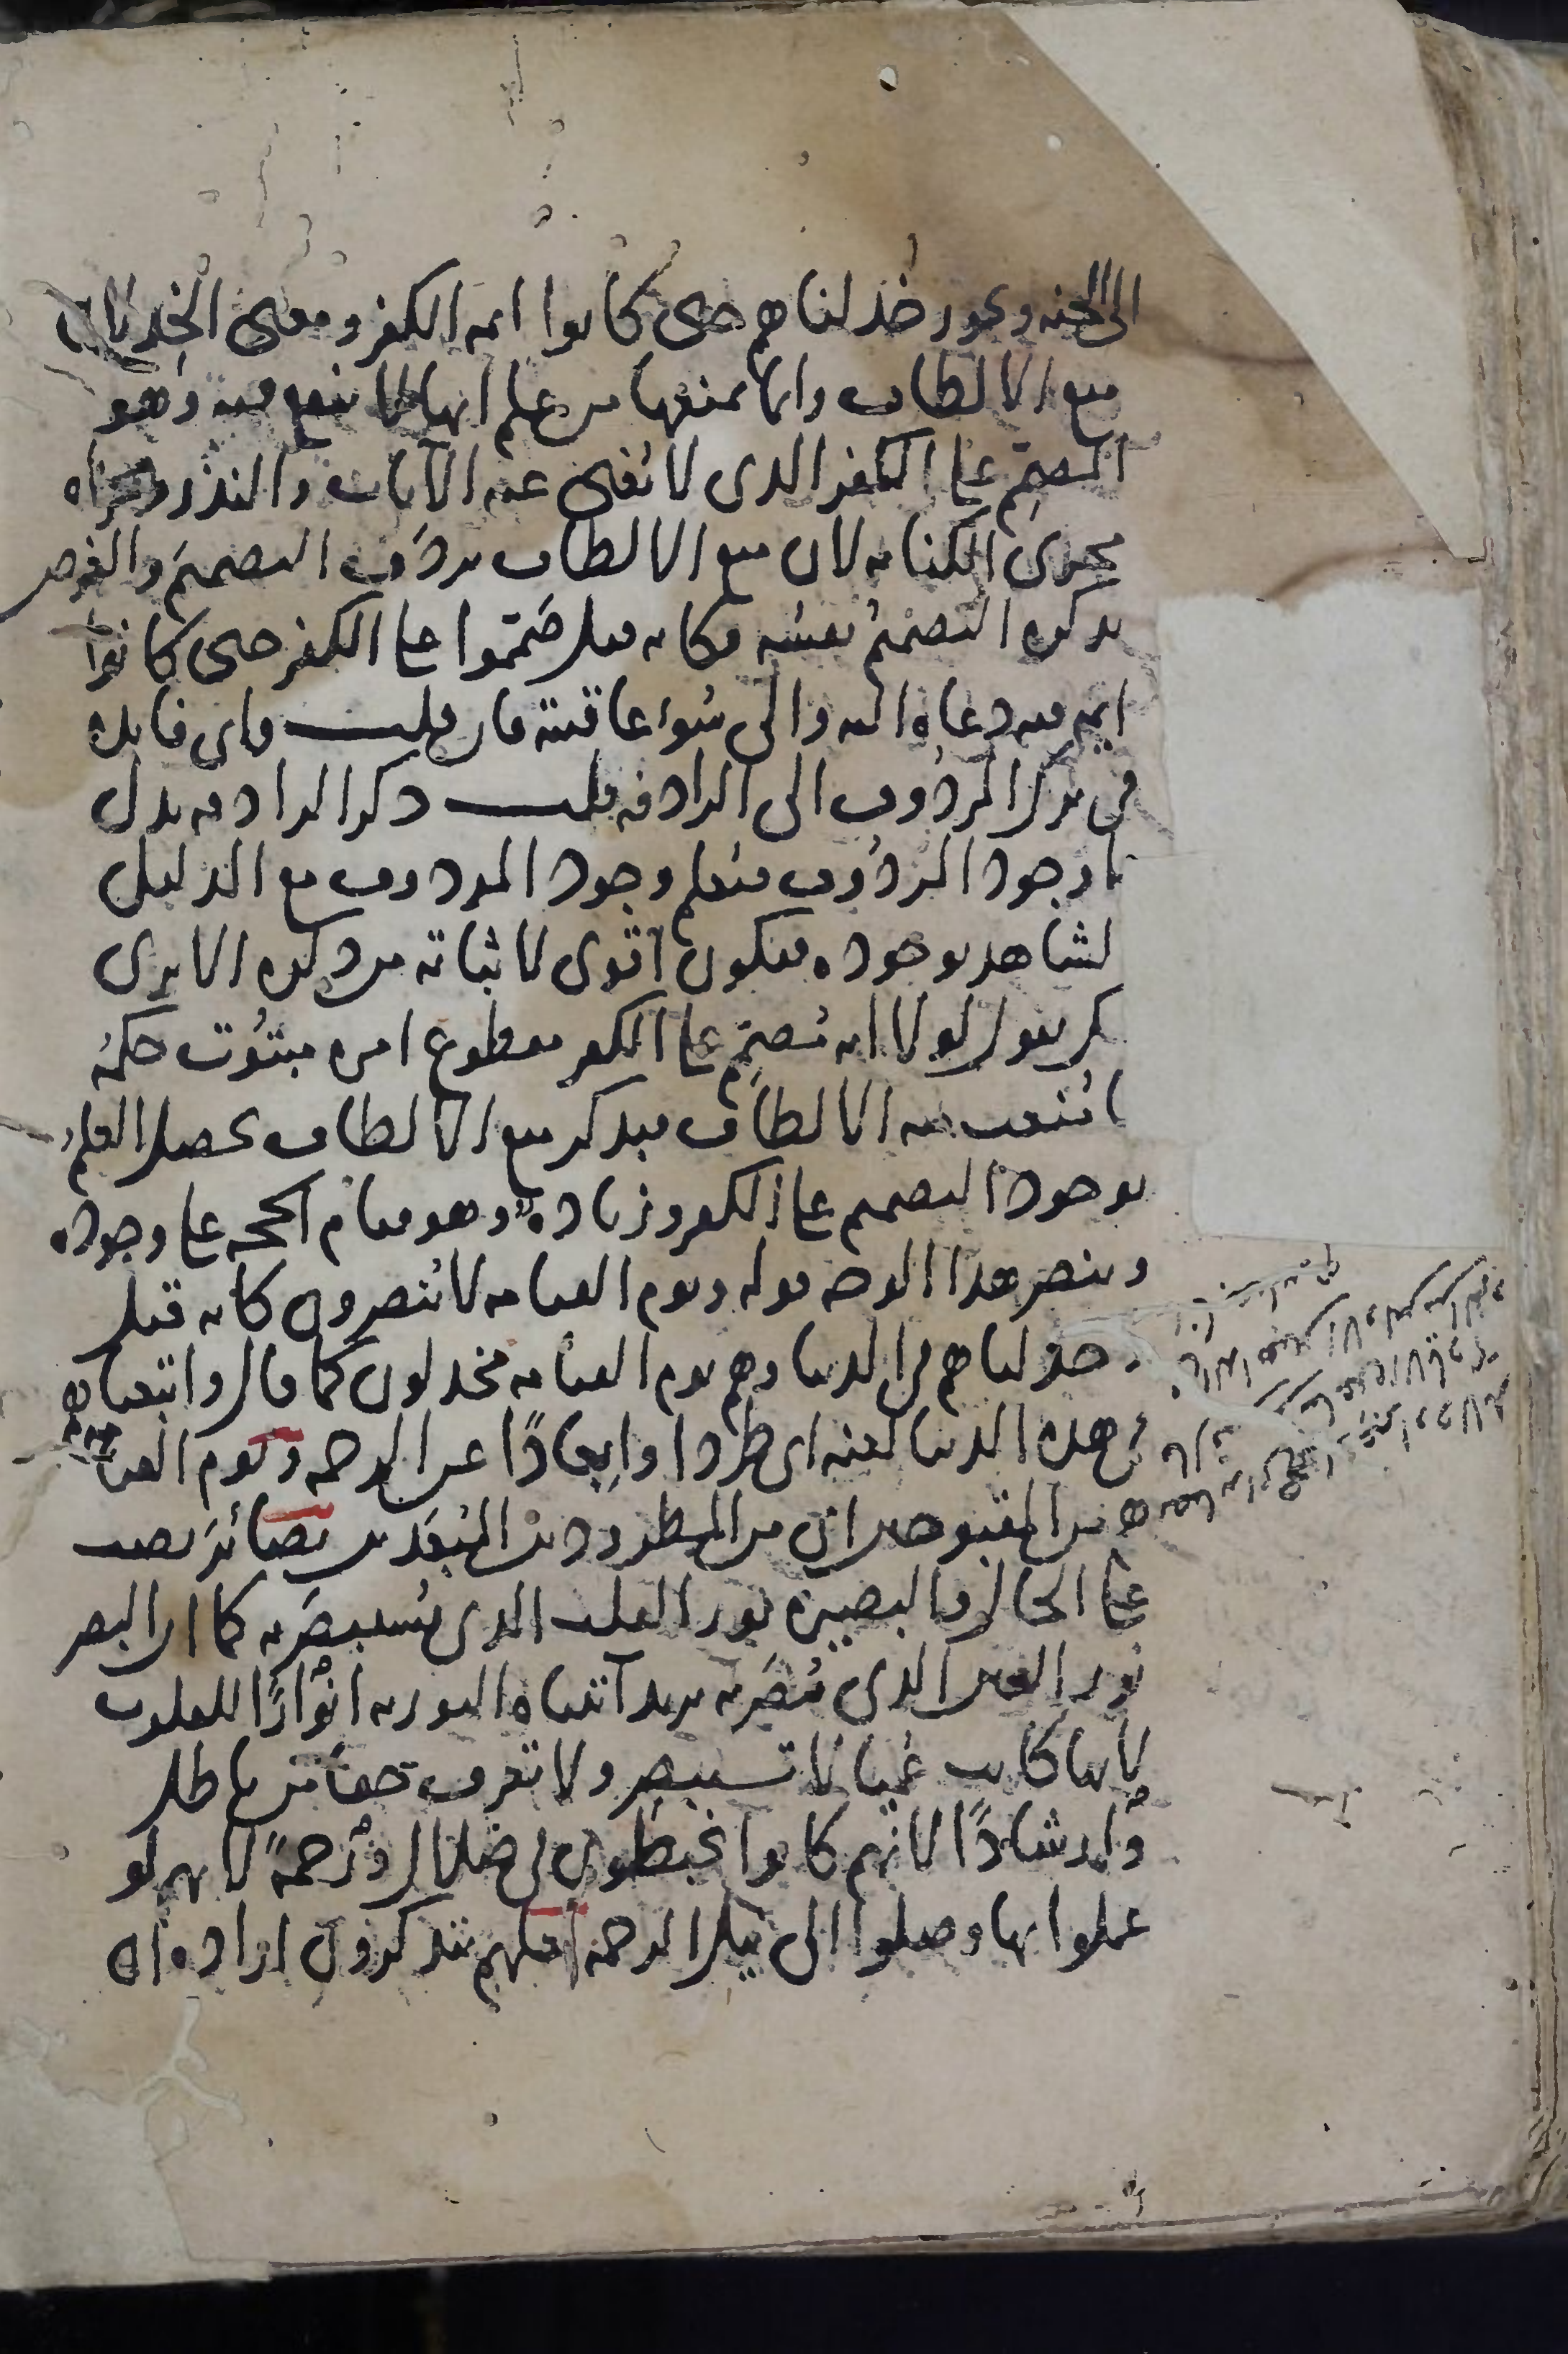 الى الجنه ويجوز خذلناهم حتى كانوا ايمه الكفر ومعنى الخذلان
منع الالطاف وانما يمنعها من علم انها لا تنفع فيه وهو
المصمم على الكفر الذى لا تغنى عنه الآيات والنذر ومجراه
مجرى الكنايه لان منع الالطاف يردف التصميم والغرض
بذكره التصميم نفسه فكانه قيل صمموا على الكفر حتى كانوا
ايمه فيه دعاه اليه والى سوء عاقبته فان قلت فاى فايده
فى ترك المردوف الى الرادفه قلت ذكر الرادفه يدل
على وجود المردوف فيعلم وجود المردوف مع الدليل
الشاهد بوجوده فيكون اقوى لاثباته من ذكره الا ترى
انك تقول لولا انه مصمم على الكفر مقطوع امره مبتوت حكمه
ما منعت منه الالطاف فبذكر منع الالطاف يحصل العلم
بوجود التصميم على الكفر وزياده وهو قيام الحجه على وجوده
وينصر هذا الوجه قوله ويوم القيامه لا ينصرون كانه قيل
وخذلناهم فى الدنيا وهم يوم القيامه مخذولون كما قال واتبعناهم
فى هذه الدنيا لعنه اى طردا وابعادًا عن الرحمه ويوم القيامه
هم من المقبوحين اى من المطرودين المبعدين بصائر نصب
على الحال والبصيرة نور القلب الذى يستبصر به كما ان البصر
نور العين الذى تبصر به يريد آتيناه التوريه انوارًا للقلوب
لانها كانت عميا لا تستبصر ولا تعرف حقا من باطل
وارشادًا لانهم كانوا يخبطون فى ضلال ورحمةً لانهم لو
عملوا بها وصلوا الى نيل الرحمه لعلهم يتذكرون اراده ان